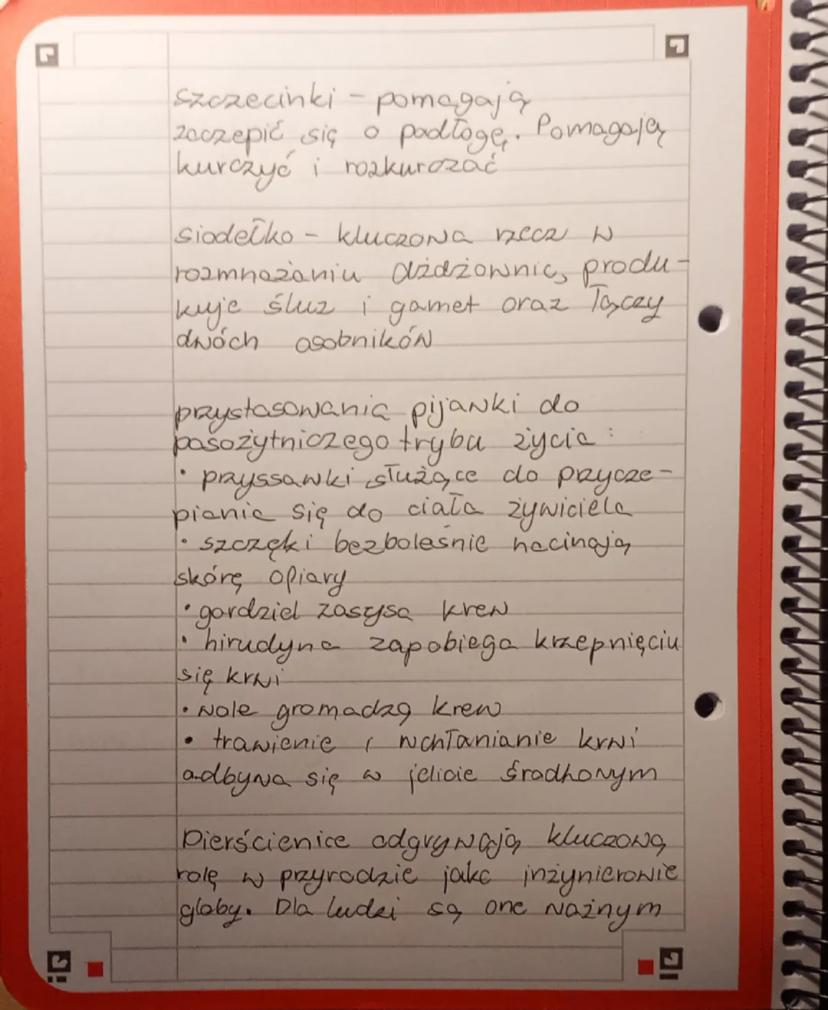 szczecinki – pomagają
zaczepić się o podłogę. Pomagają
kurczyć i rozkurczać
siodełko – kluczowa rzecz w
rozmnażaniu dżdżownic, produ-
kuje śluz i gamet oraz łączy
dwóch osobników
przystosowania pijawki do
pasożytniczego trybu życia:
• przyssawki służące do przycze-
piania się do ciała żywiciela
• szczęki bezboleśnie nacinają
skórę ofiary
• gardziel zasysa krew
• hirudyna zapobiega krzepnięciu
się krwi
• wole gromadzą krew
• trawienie i wchłanianie krwi
odbywa się w jelicie środkowym
Pierścienice odgrywają kluczową
rolę w przyrodzie jako inżynierowie
gleby. Dla ludzi są one ważnym